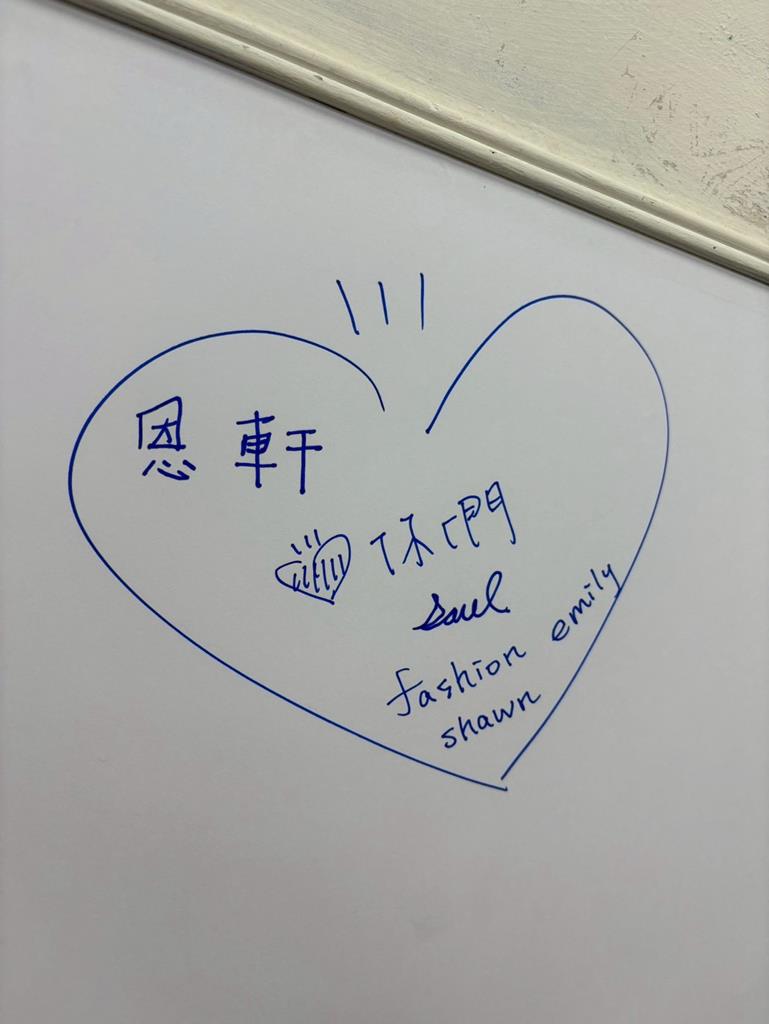 恩軒
你們
saul
fashion emily
shawn